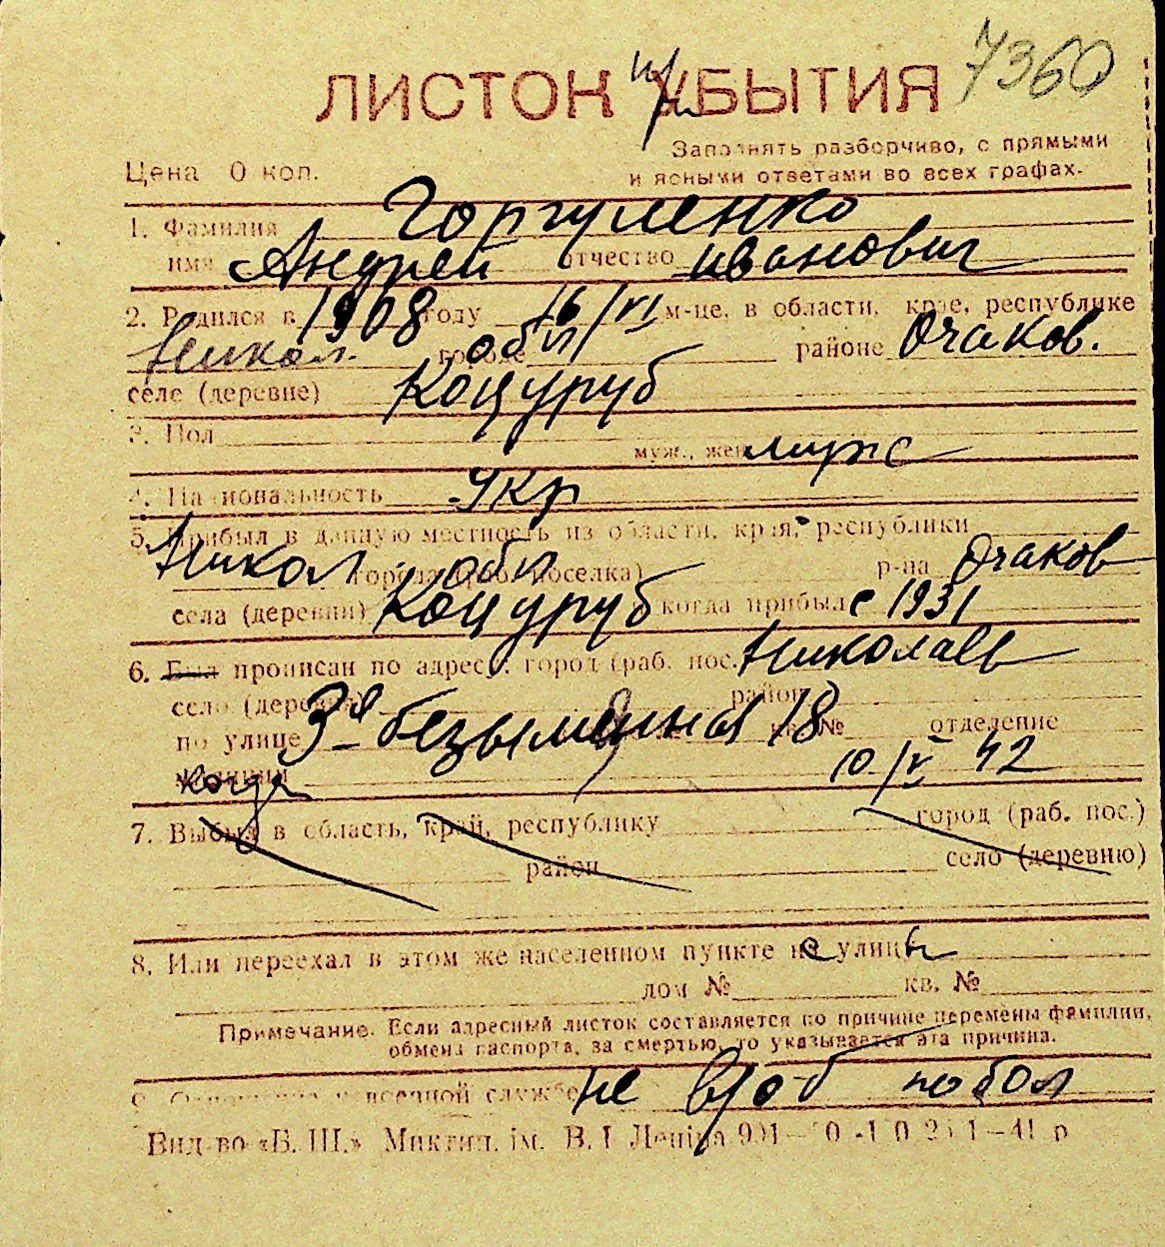 7360
ЛИСТОК при УБЫТИЯ
Заполнять разборчиво, с прямыми
Цена 0 коп. и ясными ответами во всех графах.
1. Фамилия Горгуленко
имя Андрей отчество Иванович
2. Родился в 1908 году 16/VI м-це, в области, крае, республике
Никол. обл городе районе Очаков.
селе (деревне) Коцуруб
3. Пол
муж., жен. муж
4. Национальность укр
5. Прибыл в данную местность из области, края, республики
Никол обл города (раб. поселка) р-на Очаков
села (деревни) Коцуруб когда прибыл с 1931
6. Был прописан по адресу: город (раб. пос. Николаев
село (деревня) район
по улице 3я безымянная 18 кв. № отделение
милиции когда 10/V 42
7. Выбыл в область, край, республику город (раб. пос.)
район село (деревню)
8. Или переехал в этом же населенном пункте с улицы
дом № кв. №
Примечание. Если адресный листок составляется по причине перемены фамилии,
обмена паспорта, за смертью, то указывается эта причина.
9. военной службе не
Вид-во «Б. Ш.» Микгип. ім. В. І. Леніна